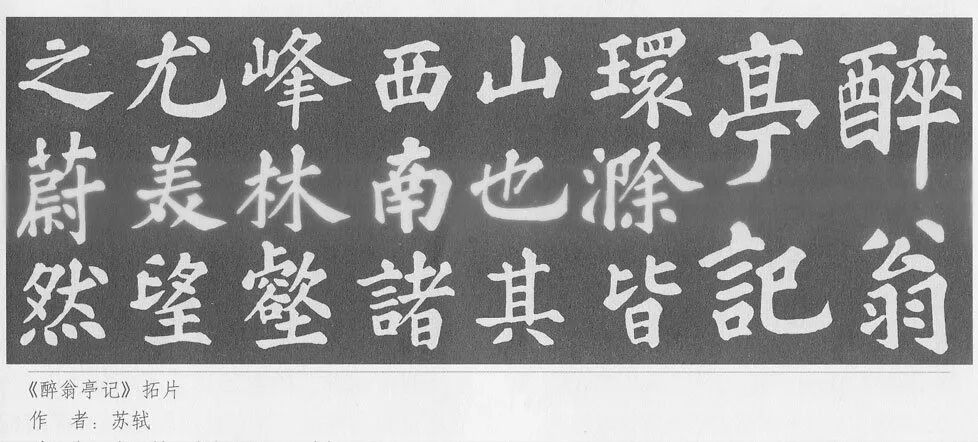 醉翁
亭記
環滁皆
山也其
西南諸
峰林壑
尤美望
之蔚然
《醉翁亭记》拓片
作 者：苏轼